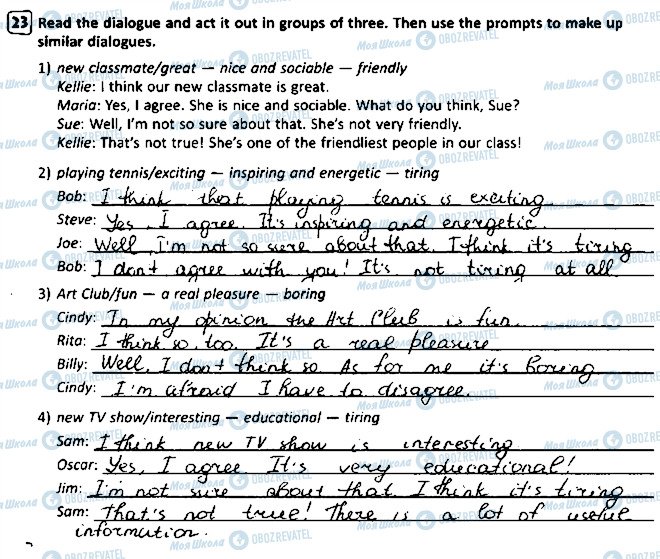 23 Read the dialogue and act it out in groups of three. Then use the prompts to make up
similar dialogues.
1) new classmate/great — nice and sociable — friendly
Kellie: I think our new classmate is great.
Maria: Yes, I agree. She is nice and sociable. What do you think, Sue?
Sue: Well, I'm not so sure about that. She's not very friendly.
Kellie: That's not true! She's one of the friendliest people in our class!
2) playing tennis/exciting — inspiring and energetic — tiring
Bob: I think that playing tennis is exciting.
Steve: Yes, I agree. It's inspiring and energetic.
Joe: Well, I'm not so sure about that. I think it's tiring
Bob: I don't agree with you! It's not tiring at all.
3) Art Club/fun — a real pleasure — boring
Cindy: In my opinion the Art Club is fun.
Rita: I think so, too. It's a real pleasure
Billy: Well, I don't think so. As for me it's boring
Cindy: I'm afraid I have to disagree.
4) new TV show/interesting — educational — tiring
Sam: I think new TV show is interesting
Oscar: Yes, I agree. It's very educational!
Jim: I'm not sure about that. I think it's tiring
Sam: That's not true! There is a lot of useful
information.
Моя Школа OBOZREVATEL